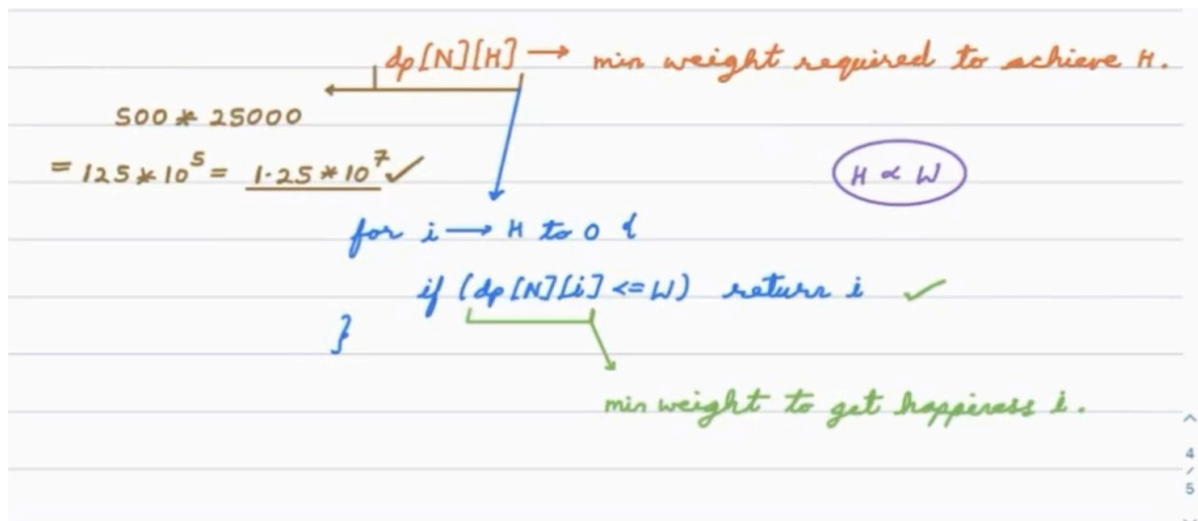 dp[N][H] → min weight required to achieve H.
500 * 25000
= 125 * 10^5 = 1.25 * 10^7 ✓
H ∝ W
for i → H to 0 {
if (dp[N][i] <= W) return i ✓
}
min weight to get happiness i.
4
/
5